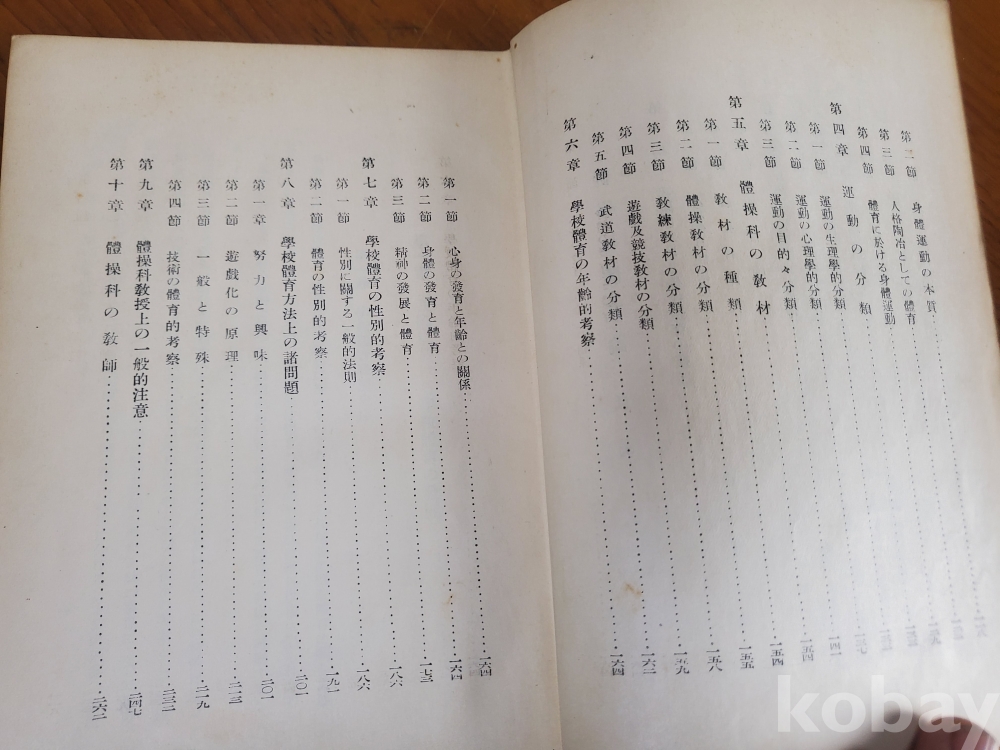 第二節 身體運動の本質
第三節 人格陶冶としての體育
第四節 體育に於ける身體運動
第四章 運動の分類
第一節 運動の生理學的分類
第二節 運動の心理學的分類
第三節 運動の目的々分類 一四一
第五章 體操科の教材 一五四
第一節 教材の種類 一五四
第二節 體操教材の分類 一五五
第三節 教練教材の分類 一五八
第四節 遊戲及競技教材の分類 一五九
第五節 武道教材の分類 一六二
第六章 學校體育の年齡的考察 一六四
第一節 心身の發育と年齡との關係 一六四
第二節 身體の發育と體育 一六四
第三節 精神の發展と體育 一七三
第七章 學校體育の性別的考察 一八六
第一節 性別に關する一般的法則 一八六
第二節 體育の性別的考察 一九一
第八章 學校體育方法上の諸問題 二〇一
第一章 努力と興味 二〇一
第二節 遊戲化の原理 二一三
第三節 一般と特殊 二一九
第四節 技術の體育的考察 二三二
第九章 體操科教授上の一般的注意 二四七
第十章 體操科の教師 二六二
kobay